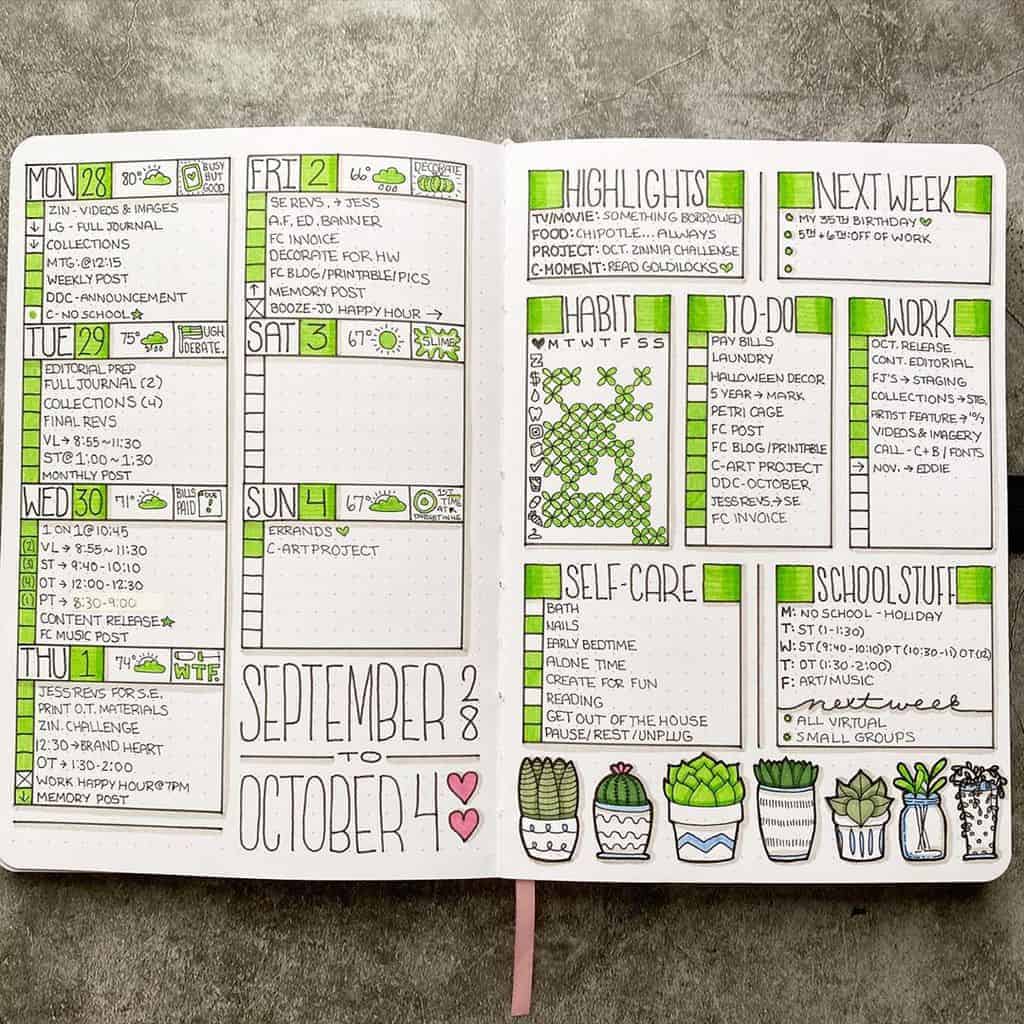 MON 28 80° BUSY BUT GOOD
ZIN - VIDEOS & IMAGES
LG - FULL JOURNAL
COLLECTIONS
MTG: @12:15
WEEKLY POST
DDC - ANNOUNCEMENT
C - NO SCHOOL
TUE 29 75° UGH. DEBATE.
EDITORIAL PREP
FULL JOURNAL (2)
COLLECTIONS (4)
FINAL REVS
VL → 8:55 ~ 11:30
ST @ 1:00 ~ 1:30
MONTHLY POST
WED 30 71° BILLS PAID
1 ON 1 @ 10:45
(2) VL → 8:55 ~ 11:30
(3) ST → 9:40 - 10:10
(4) OT → 12:00 - 12:30
(1) PT → 8:30 - 9:00
CONTENT RELEASE
FC MUSIC POST
THU 1 74° OH WTF.
JESS REVS FOR S.E.
PRINT O.T. MATERIALS
ZIN. CHALLENGE
12:30 → BRAND HEART
OT → 1:30 - 2:00
WORK HAPPY HOUR @ 7PM
MEMORY POST
FRI 2 66° DECORATE
SE REVS. → JESS
A.F. ED. BANNER
FC INVOICE
DECORATE FOR HW
FC BLOG/PRINTABLE/PICS
MEMORY POST
BOOZE-JO HAPPY HOUR →
SAT 3 67° SLIME
SUN 4 67° 1ST TIME AT
ERRANDS ♥
C-ART PROJECT
SEPTEMBER 28
TO
OCTOBER 4
HIGHLIGHTS
TV/MOVIE: SOMETHING BORROWED
FOOD: CHIPOTLE... ALWAYS
PROJECT: OCT. ZINNIA CHALLENGE
C-MOMENT: READ GOLDILOCKS ♥
NEXT WEEK
MY 35TH BIRTHDAY ♥
5TH + 6TH: OFF OF WORK
HABIT
♥ M T W T F S S
Z
$
TO-DO
PAY BILLS
LAUNDRY
HALLOWEEN DECOR
5 YEAR → MARK
PETRI CAGE
FC POST
FC BLOG/PRINTABLE
C-ART PROJECT
DDC-OCTOBER
JESS REVS. → SE
FC INVOICE
WORK
OCT. RELEASE
CONT. EDITORIAL
FJ'S → STAGING
COLLECTIONS → STG.
ARTIST FEATURE → 10/7
VIDEOS & IMAGERY
CALL - C + B / FONTS
→ NOV. → EDDIE
SELF-CARE
BATH
NAILS
EARLY BEDTIME
ALONE TIME
CREATE FOR FUN
READING
GET OUT OF THE HOUSE
PAUSE/REST/UNPLUG
SCHOOL STUFF
M: NO SCHOOL - HOLIDAY
T: ST (1-1:30)
W: ST (9:40-10:10) PT (10:30-11) OT (12)
T: OT (1:30-2:00)
F: ART/MUSIC
next week
ALL VIRTUAL
SMALL GROUPS